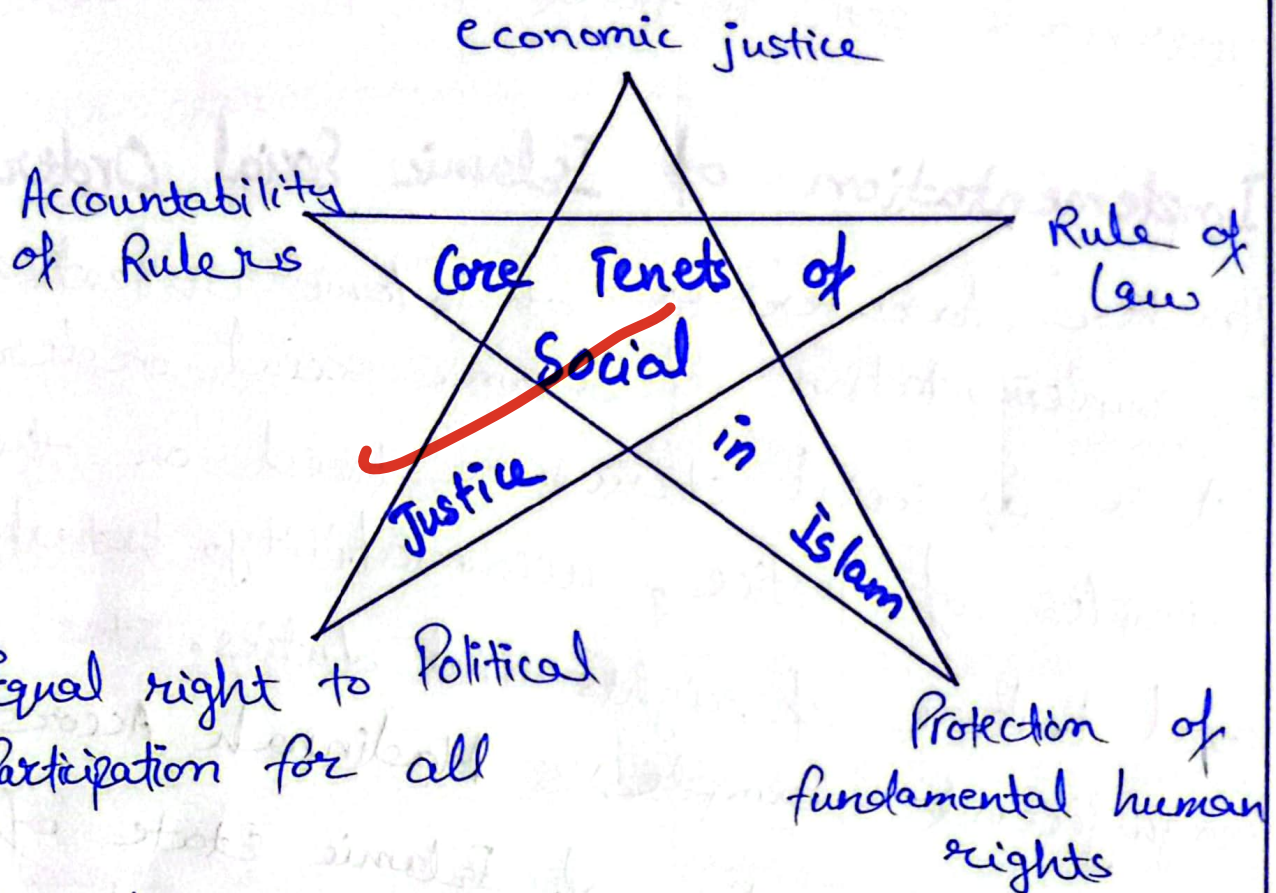 economic justice
Accountability
of Rulers
Rule of
Law
Core Tenets of
Social
Justice
in
Islam
Equal right to Political
Participation for all
Protection of
fundamental human
rights